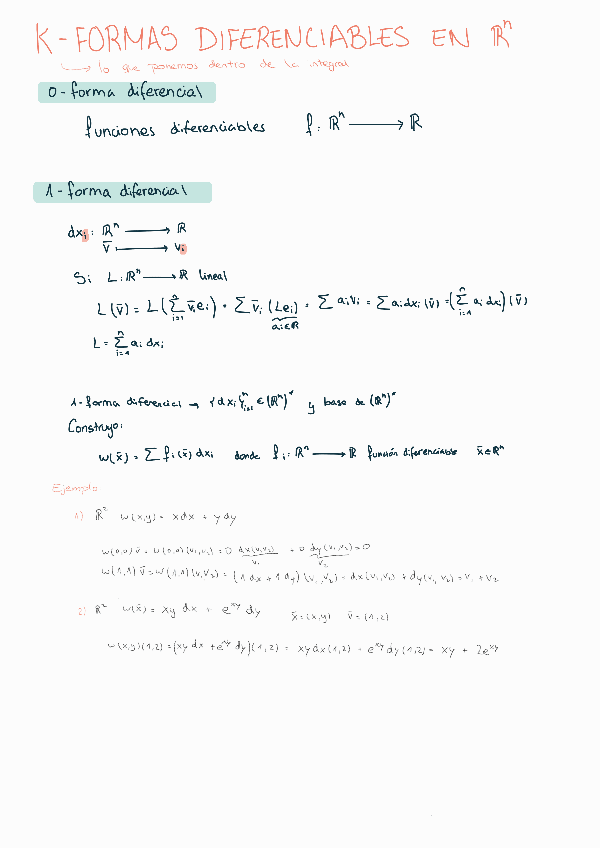 K-FORMAS DIFERENCIABLES EN ℝⁿ
↳ lo que ponemos dentro de la integral
0-forma diferencial
funciones diferenciables f: ℝⁿ ⟶ ℝ
1-forma diferencial
dxᵢ: ℝⁿ ⟶ ℝ
v̄ ⟼ vᵢ
Si L: ℝⁿ ⟶ ℝ lineal
L(v̄) = L(∑ᵢ₌₁ⁿ v̄ᵢeᵢ) = ∑ v̄ᵢ (Leᵢ) = ∑ aᵢvᵢ = ∑ aᵢdxᵢ(v̄) = (∑ᵢ₌₁ⁿ aᵢ dxᵢ)(v̄)
aᵢ∈ℝ
L = ∑ᵢ₌₁ⁿ aᵢ dxᵢ
1-forma diferencial → {dxᵢ}ᵢ₌₁ⁿ ∈ (ℝⁿ)* y base de (ℝⁿ)*
Construyo:
w(x̄) = ∑ fᵢ(x̄) dxᵢ donde fᵢ: ℝⁿ ⟶ ℝ función diferenciable x̄∈ℝⁿ
Ejemplo
1) ℝ² w(x,y) = xdx + ydy
w(0,0)v̄ = w(0,0)(v₁,v₂) = 0 dx(v₁,v₂) + 0 dy(v₁,v₂) = 0
v₁ v₂
w(1,1)v̄ = w(1,1)(v₁,v₂) = (1dx + 1dy)(v₁,v₂) = dx(v₁,v₂) + dy(v₁,v₂) = v₁ + v₂
2) ℝ² w(x̄) = xy dx + e^{xy} dy x̄ = (x,y) v̄ = (1,2)
w(x,y)(1,2) = (xy dx + e^{xy} dy)(1,2) = xy dx(1,2) + e^{xy} dy(1,2) = xy + 2e^{xy}